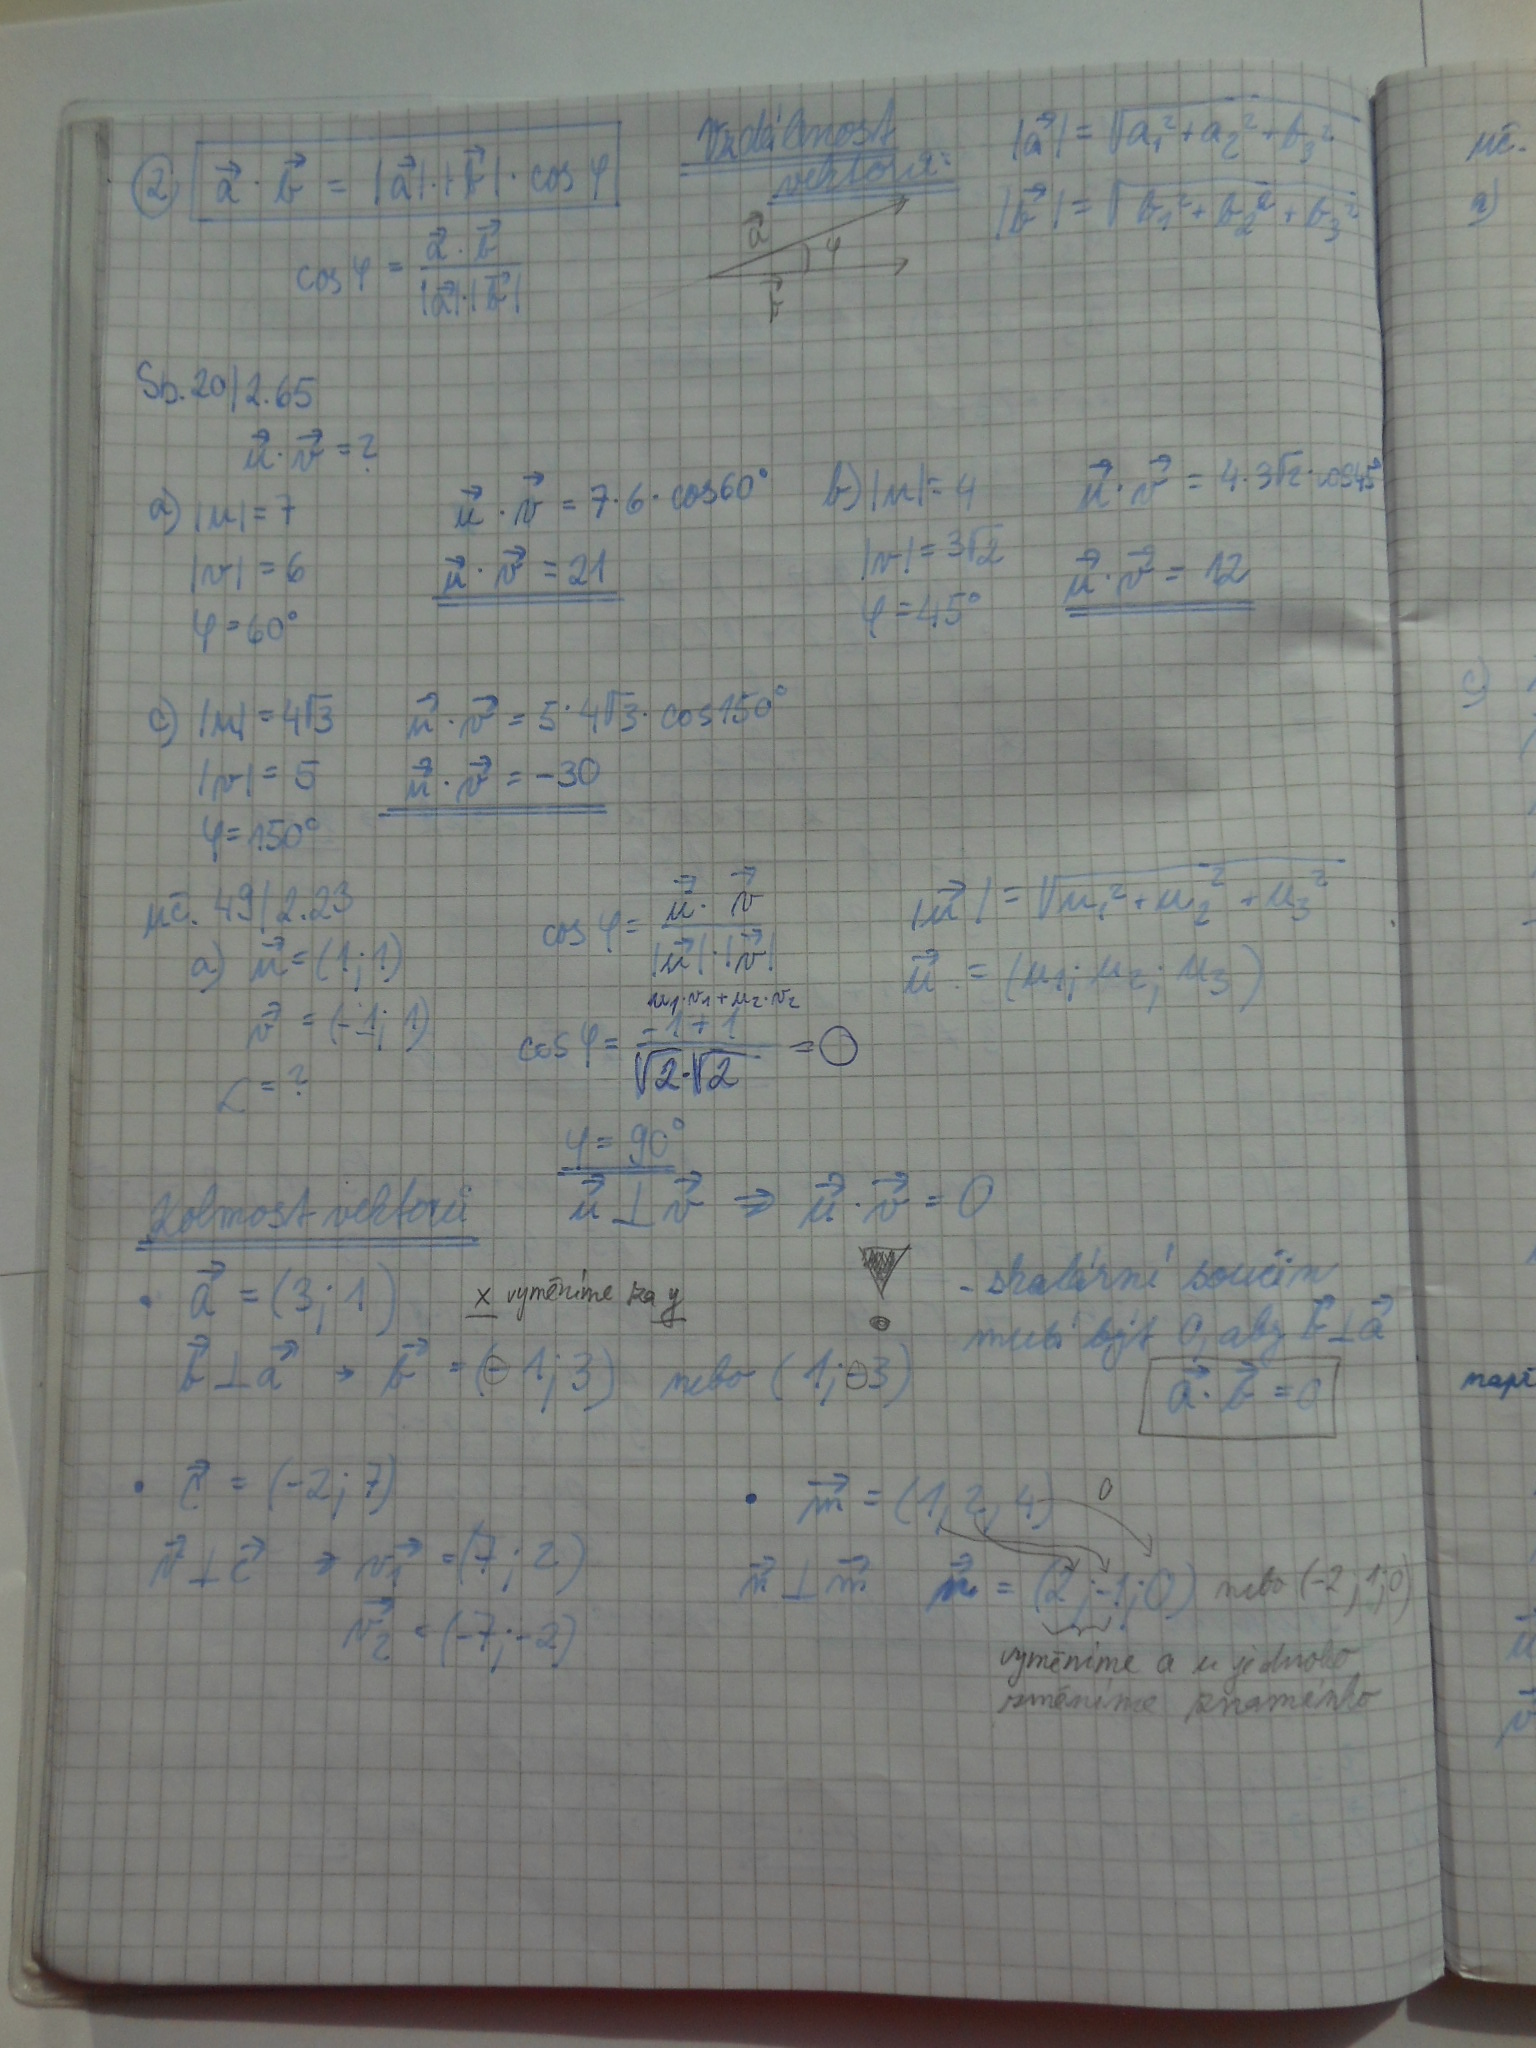 ② a⃗ · b⃗ = |a⃗| · |b⃗| · cos φ
cos φ = a⃗ · b⃗ / |a⃗| · |b⃗|
Vzdálenost
vektorů:
a⃗ φ
b⃗
|a⃗| = √a₁² + a₂² + b₃²
|b⃗| = √b₁² + b₂² + b₃²
Sb. 20/2.65
u⃗ · v⃗ = ?
a) |u| = 7
|v| = 6
φ = 60°
u⃗ · v⃗ = 7 · 6 · cos 60°
u⃗ · v⃗ = 21
b) |u| = 4
|v| = 3√2
φ = 45°
u⃗ · v⃗ = 4 · 3√2 · cos 45°
u⃗ · v⃗ = 12
c) |u| = 4√3
|v| = 5
φ = 150°
u⃗ · v⃗ = 5 · 4√3 · cos 150°
u⃗ · v⃗ = -30
uč. 49/2.23
a) u⃗ = (1; 1)
v⃗ = (-1; 1)
∠ = ?
cos φ = u⃗ · v⃗ / |u⃗| · |v⃗|
u₁·v₁ + u₂·v₂
cos φ = -1 + 1 / √2 · √2 = 0
φ = 90°
|u⃗| = √u₁² + u₂² + u₃²
u⃗ = (u₁; u₂; u₃)
Kolmost vektorů
u⃗ ⊥ v⃗ ⇒ u⃗ · v⃗ = 0
• a⃗ = (3; 1)
x vyměníme za y
b⃗ ⊥ a⃗ → b⃗ = (-1; 3) nebo (1; -3)
!
- skalární součin
musí být 0, aby b⃗ ⊥ a⃗
a⃗ · b⃗ = 0
• c⃗ = (-2; 7)
v⃗ ⊥ c⃗ ⇒ v₁⃗ = (7; 2)
v₂⃗ = (-7; -2)
• m⃗ = (1, 2, 4) 0
n⃗ ⊥ m⃗ n⃗ = (2; -1; 0) nebo (-2; 1; 0)
vyměníme a u jednoho
změníme znaménko
uč.
a)
c)
např
u⃗
v⃗